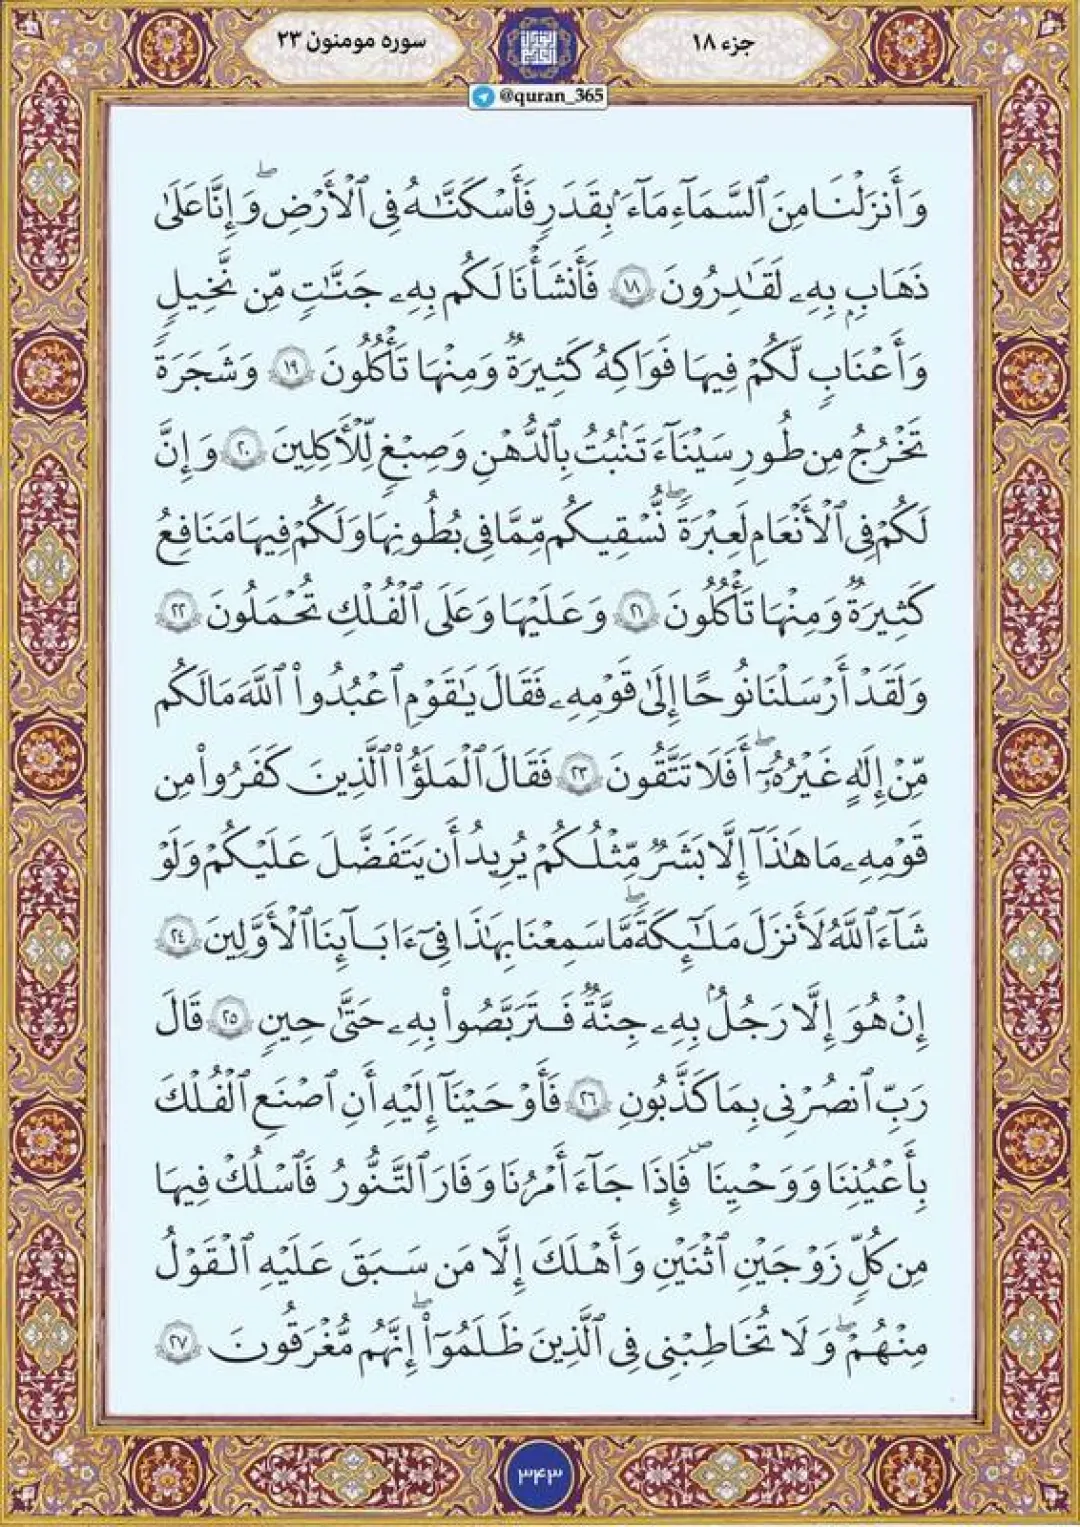 سوره مومنون ۲۳
جزء ۱۸
@quran_365
وَأَنزَلْنَا مِنَ ٱلسَّمَآءِ مَآءَۢ بِقَدَرٍ فَأَسْكَنَّـٰهُ فِى ٱلْأَرْضِ ۖ وَإِنَّا عَلَىٰ
ذَهَابٍۭ بِهِۦ لَقَـٰدِرُونَ ١٨ فَأَنشَأْنَا لَكُم بِهِۦ جَنَّـٰتٍ مِّن نَّخِيلٍ
وَأَعْنَـٰبٍ لَّكُمْ فِيهَا فَوَٰكِهُ كَثِيرَةٌ وَمِنْهَا تَأْكُلُونَ ١٩ وَشَجَرَةً
تَخْرُجُ مِن طُورِ سَيْنَآءَ تَنۢبُتُ بِٱلدُّهْنِ وَصِبْغٍ لِّلْـَٔاكِلِينَ ٢٠ وَإِنَّ
لَكُمْ فِى ٱلْأَنْعَـٰمِ لَعِبْرَةً ۖ نُّسْقِيكُم مِّمَّا فِى بُطُونِهَا وَلَكُمْ فِيهَا مَنَـٰفِعُ
كَثِيرَةٌ وَمِنْهَا تَأْكُلُونَ ٢١ وَعَلَيْهَا وَعَلَى ٱلْفُلْكِ تُحْمَلُونَ ٢٢
وَلَقَدْ أَرْسَلْنَا نُوحًا إِلَىٰ قَوْمِهِۦ فَقَالَ يَـٰقَوْمِ ٱعْبُدُوا۟ ٱللَّهَ مَا لَكُم
مِّنْ إِلَـٰهٍ غَيْرُهُۥٓ ۖ أَفَلَا تَتَّقُونَ ٢٣ فَقَالَ ٱلْمَلَؤُا۟ ٱلَّذِينَ كَفَرُوا۟ مِن
قَوْمِهِۦ مَا هَـٰذَآ إِلَّا بَشَرٌ مِّثْلُكُمْ يُرِيدُ أَن يَتَفَضَّلَ عَلَيْكُمْ وَلَوْ
شَآءَ ٱللَّهُ لَأَنزَلَ مَلَـٰٓئِكَةً مَّا سَمِعْنَا بِهَـٰذَا فِىٓ ءَابَآئِنَا ٱلْأَوَّلِينَ ٢٤
إِنْ هُوَ إِلَّا رَجُلٌۢ بِهِۦ جِنَّةٌ فَتَرَبَّصُوا۟ بِهِۦ حَتَّىٰ حِينٍ ٢٥ قَالَ
رَبِّ ٱنصُرْنِى بِمَا كَذَّبُونِ ٢٦ فَأَوْحَيْنَآ إِلَيْهِ أَنِ ٱصْنَعِ ٱلْفُلْكَ
بِأَعْيُنِنَا وَوَحْيِنَا فَإِذَا جَآءَ أَمْرُنَا وَفَارَ ٱلتَّنُّورُ ۙ فَٱسْلُكْ فِيهَا
مِن كُلٍّ زَوْجَيْنِ ٱثْنَيْنِ وَأَهْلَكَ إِلَّا مَن سَبَقَ عَلَيْهِ ٱلْقَوْلُ
مِنْهُمْ ۖ وَلَا تُخَـٰطِبْنِى فِى ٱلَّذِينَ ظَلَمُوٓا۟ ۖ إِنَّهُم مُّغْرَقُونَ ٢٧
۳۴۳